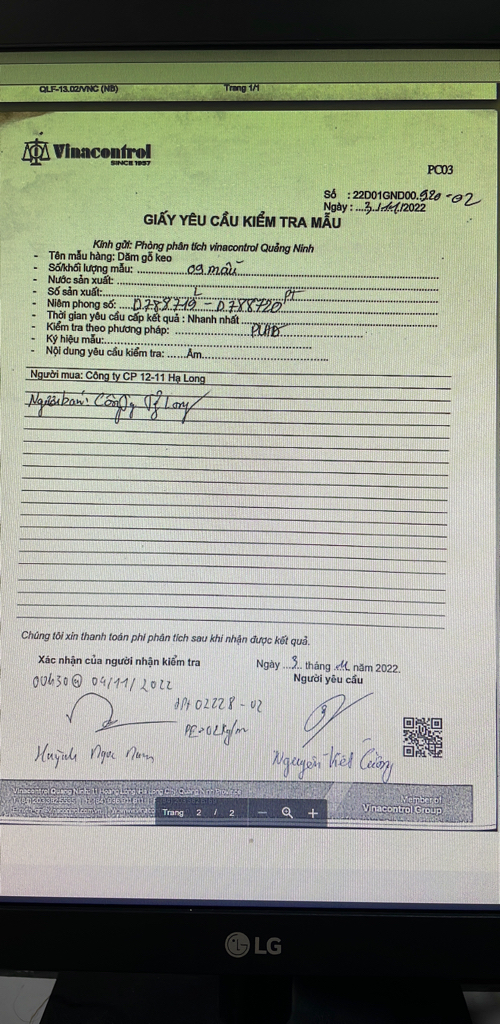 QLF-13.02/VNC (NB) Trang 1/1
Vinacontrol
SINCE 1957
PC03
Số : 22D01GND00.920-02
Ngày : ...3./11./2022
GIẤY YÊU CẦU KIỂM TRA MẪU
Kính gửi: Phòng phân tích vinacontrol Quảng Ninh
- Tên mẫu hàng: Dăm gỗ keo
- Số/khối lượng mẫu: 09 mẫu
- Nước sản xuất:
- Số sản xuất: L
- Niêm phong số: D788719 - D788720 PT
- Thời gian yêu cầu cấp kết quả : Nhanh nhất
- Kiểm tra theo phương pháp:
- Ký hiệu mẫu:
- Nội dung yêu cầu kiểm tra: ......Ẩm
Người mua: Công ty CP 12-11 Hạ Long
Người bán: Công ty Long
Chúng tôi xin thanh toán phí phân tích sau khi nhận được kết quả.
Xác nhận của người nhận kiểm tra
Ngày ...3.. tháng .11. năm 2022.
Người yêu cầu
00h30 04/11/2022
02228-02
Huỳnh Ngọc Nam
Nguyễn Viết Cường
Vinacontrol Quảng Ninh: 11 Hoang Long, Ha Long City, Quang Ninh Province
Member of
Vinacontrol Group
Trang 2 / 2
LG